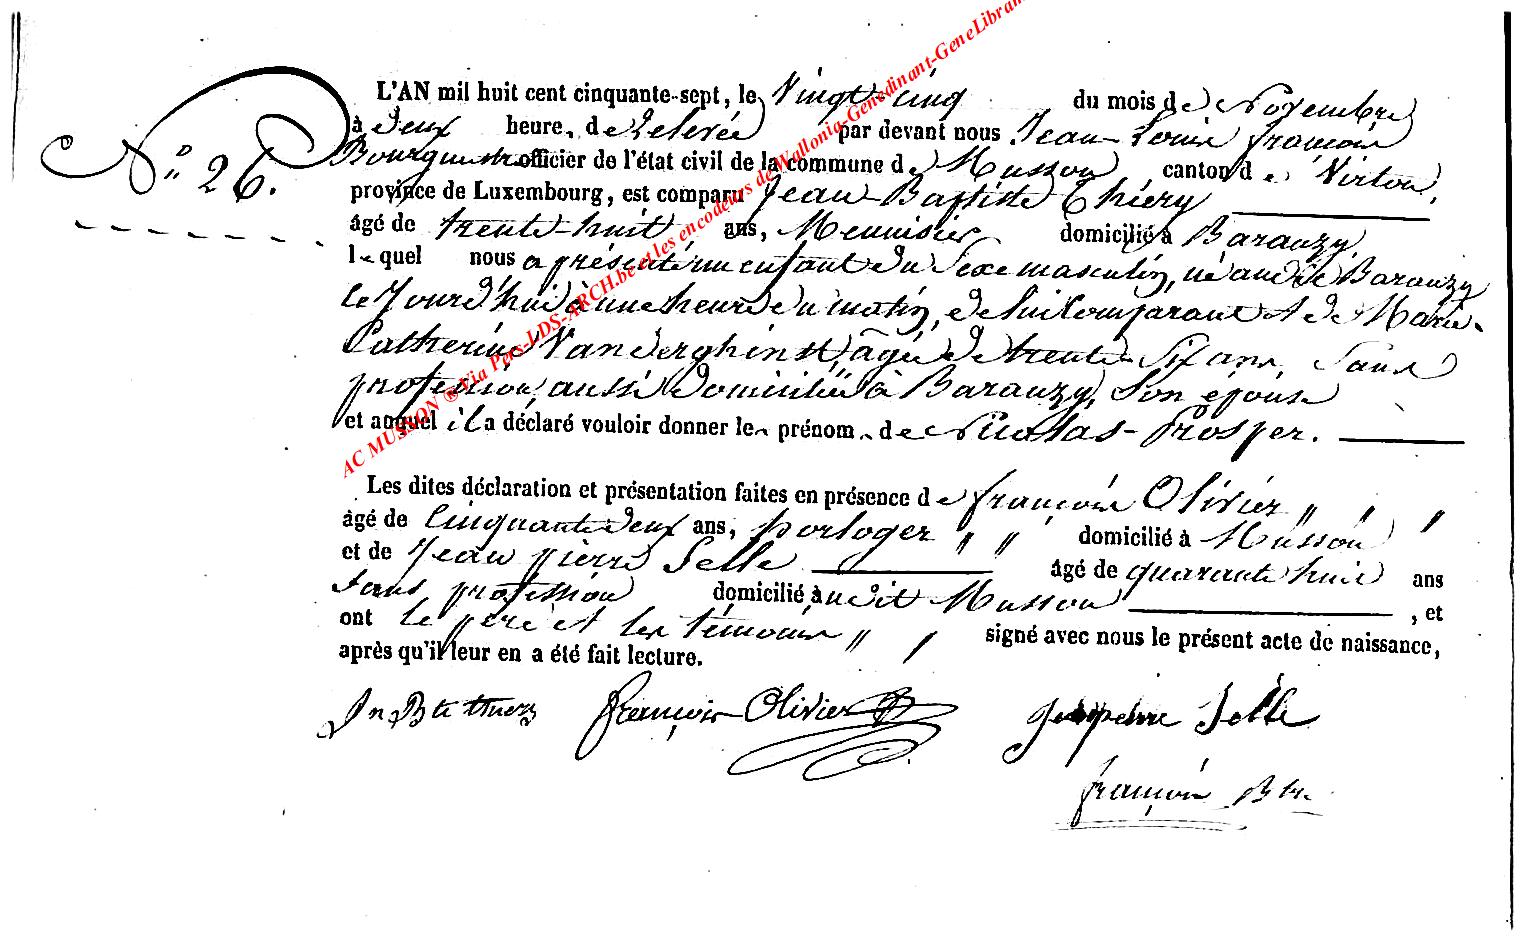 N° 26.
L'AN mil huit cent cinquante-sept, le Vingt-cinq du mois de Novembre
à deux heure, de relevée par devant nous Jean-Louis françois
Bourguignon officier de l'état civil de la commune de Musson canton de Virton,
province de Luxembourg, est comparu Jean-Baptiste Thiéry
âgé de trente-huit ans, Menuisier domicilié à Baranzy
lequel nous a présenté un enfant du Sexe masculin, né audit Baranzy
ce Jourd'hui à une heure du matin, de lui Comparant et de Marie-
Catherine Vanderghinst, âgée de trente-Six ans, Sans
profession, aussi domiciliée à Baranzy, Son épouse
et auquel il a déclaré vouloir donner les prénoms de Nicolas-Prosper.
Les dites déclaration et présentation faites en présence de françois Olivier
âgé de Cinquante deux ans, horloger domicilié à Musson
et de Jean pierre Selle âgé de quarante huit ans
Sans profession domicilié audit Musson, et
ont le père et les témoins signé avec nous le présent acte de naissance,
après qu'il leur en a été fait lecture.
Jn Bte thiery françois Olivier Jean pierre Selle
françois
AC MUSSON ® Via Pers-LDS-ARCH.be et les encodeurs de Wallonia-Genedinant-GeneLibran